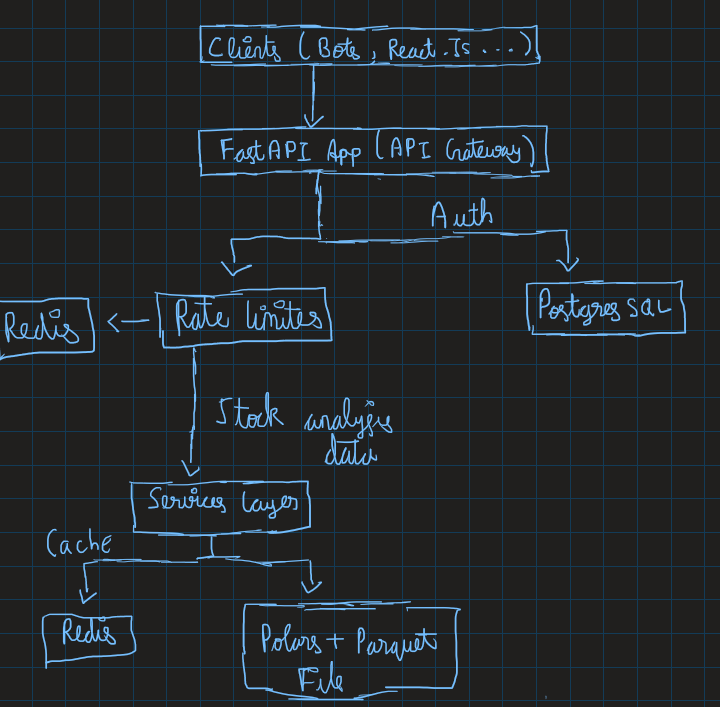 Clients (Bots, React.Js ...)
FastAPI App (API Gateway)
Auth
Redis
Rate limites
Postgres SQL
Stock analysis
data
Services Layer
Cache
Redis
Polars + Parquet
File